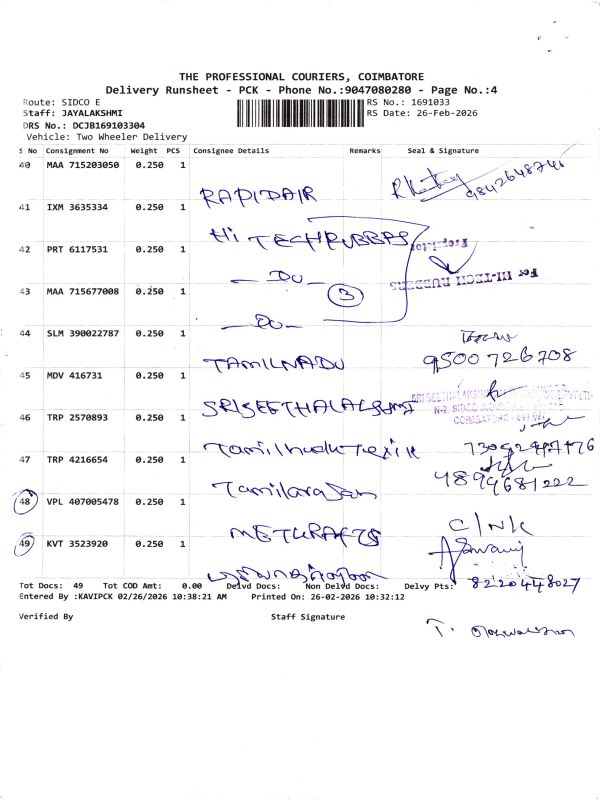 THE PROFESSIONAL COURIERS, COIMBATORE
Delivery Runsheet - PCK - Phone No.:9047080280 - Page No.:4
Route: SIDCO E
RS No.: 1691033
Staff: JAYALAKSHMI
RS Date: 26-Feb-2026
DRS No.: DCJB169103304
Vehicle: Two Wheeler Delivery
S No Consignment No Weight PCS Consignee Details Remarks Seal & Signature
40 MAA 715203050 0.250 1
RAPIDAIR 9842648746
41 IXM 3635334 0.250 1
Hi TECHRUBBRS
Propietor
42 PRT 6117531 0.250 1
— DO —
For HI-TECH RUBBERS
43 MAA 715677008 0.250 1
3
— DO —
44 SLM 390022787 0.250 1
TAMILNADU 9500726708
45 MDV 416731 0.250 1
46 TRP 2570893 0.250 1
47 TRP 4216654 0.250 1
Tamilarasan
48 VPL 407005478 0.250 1
METCRAFTS
49 KVT 3523920 0.250 1
8220448027
Tot Docs: 49 Tot COD Amt: 0.00 Delvd Docs: Non Delvd Docs: Delvy Pts:
Entered By :KAVIPCK 02/26/2026 10:38:21 AM Printed On: 26-02-2026 10:32:12
Verified By Staff Signature